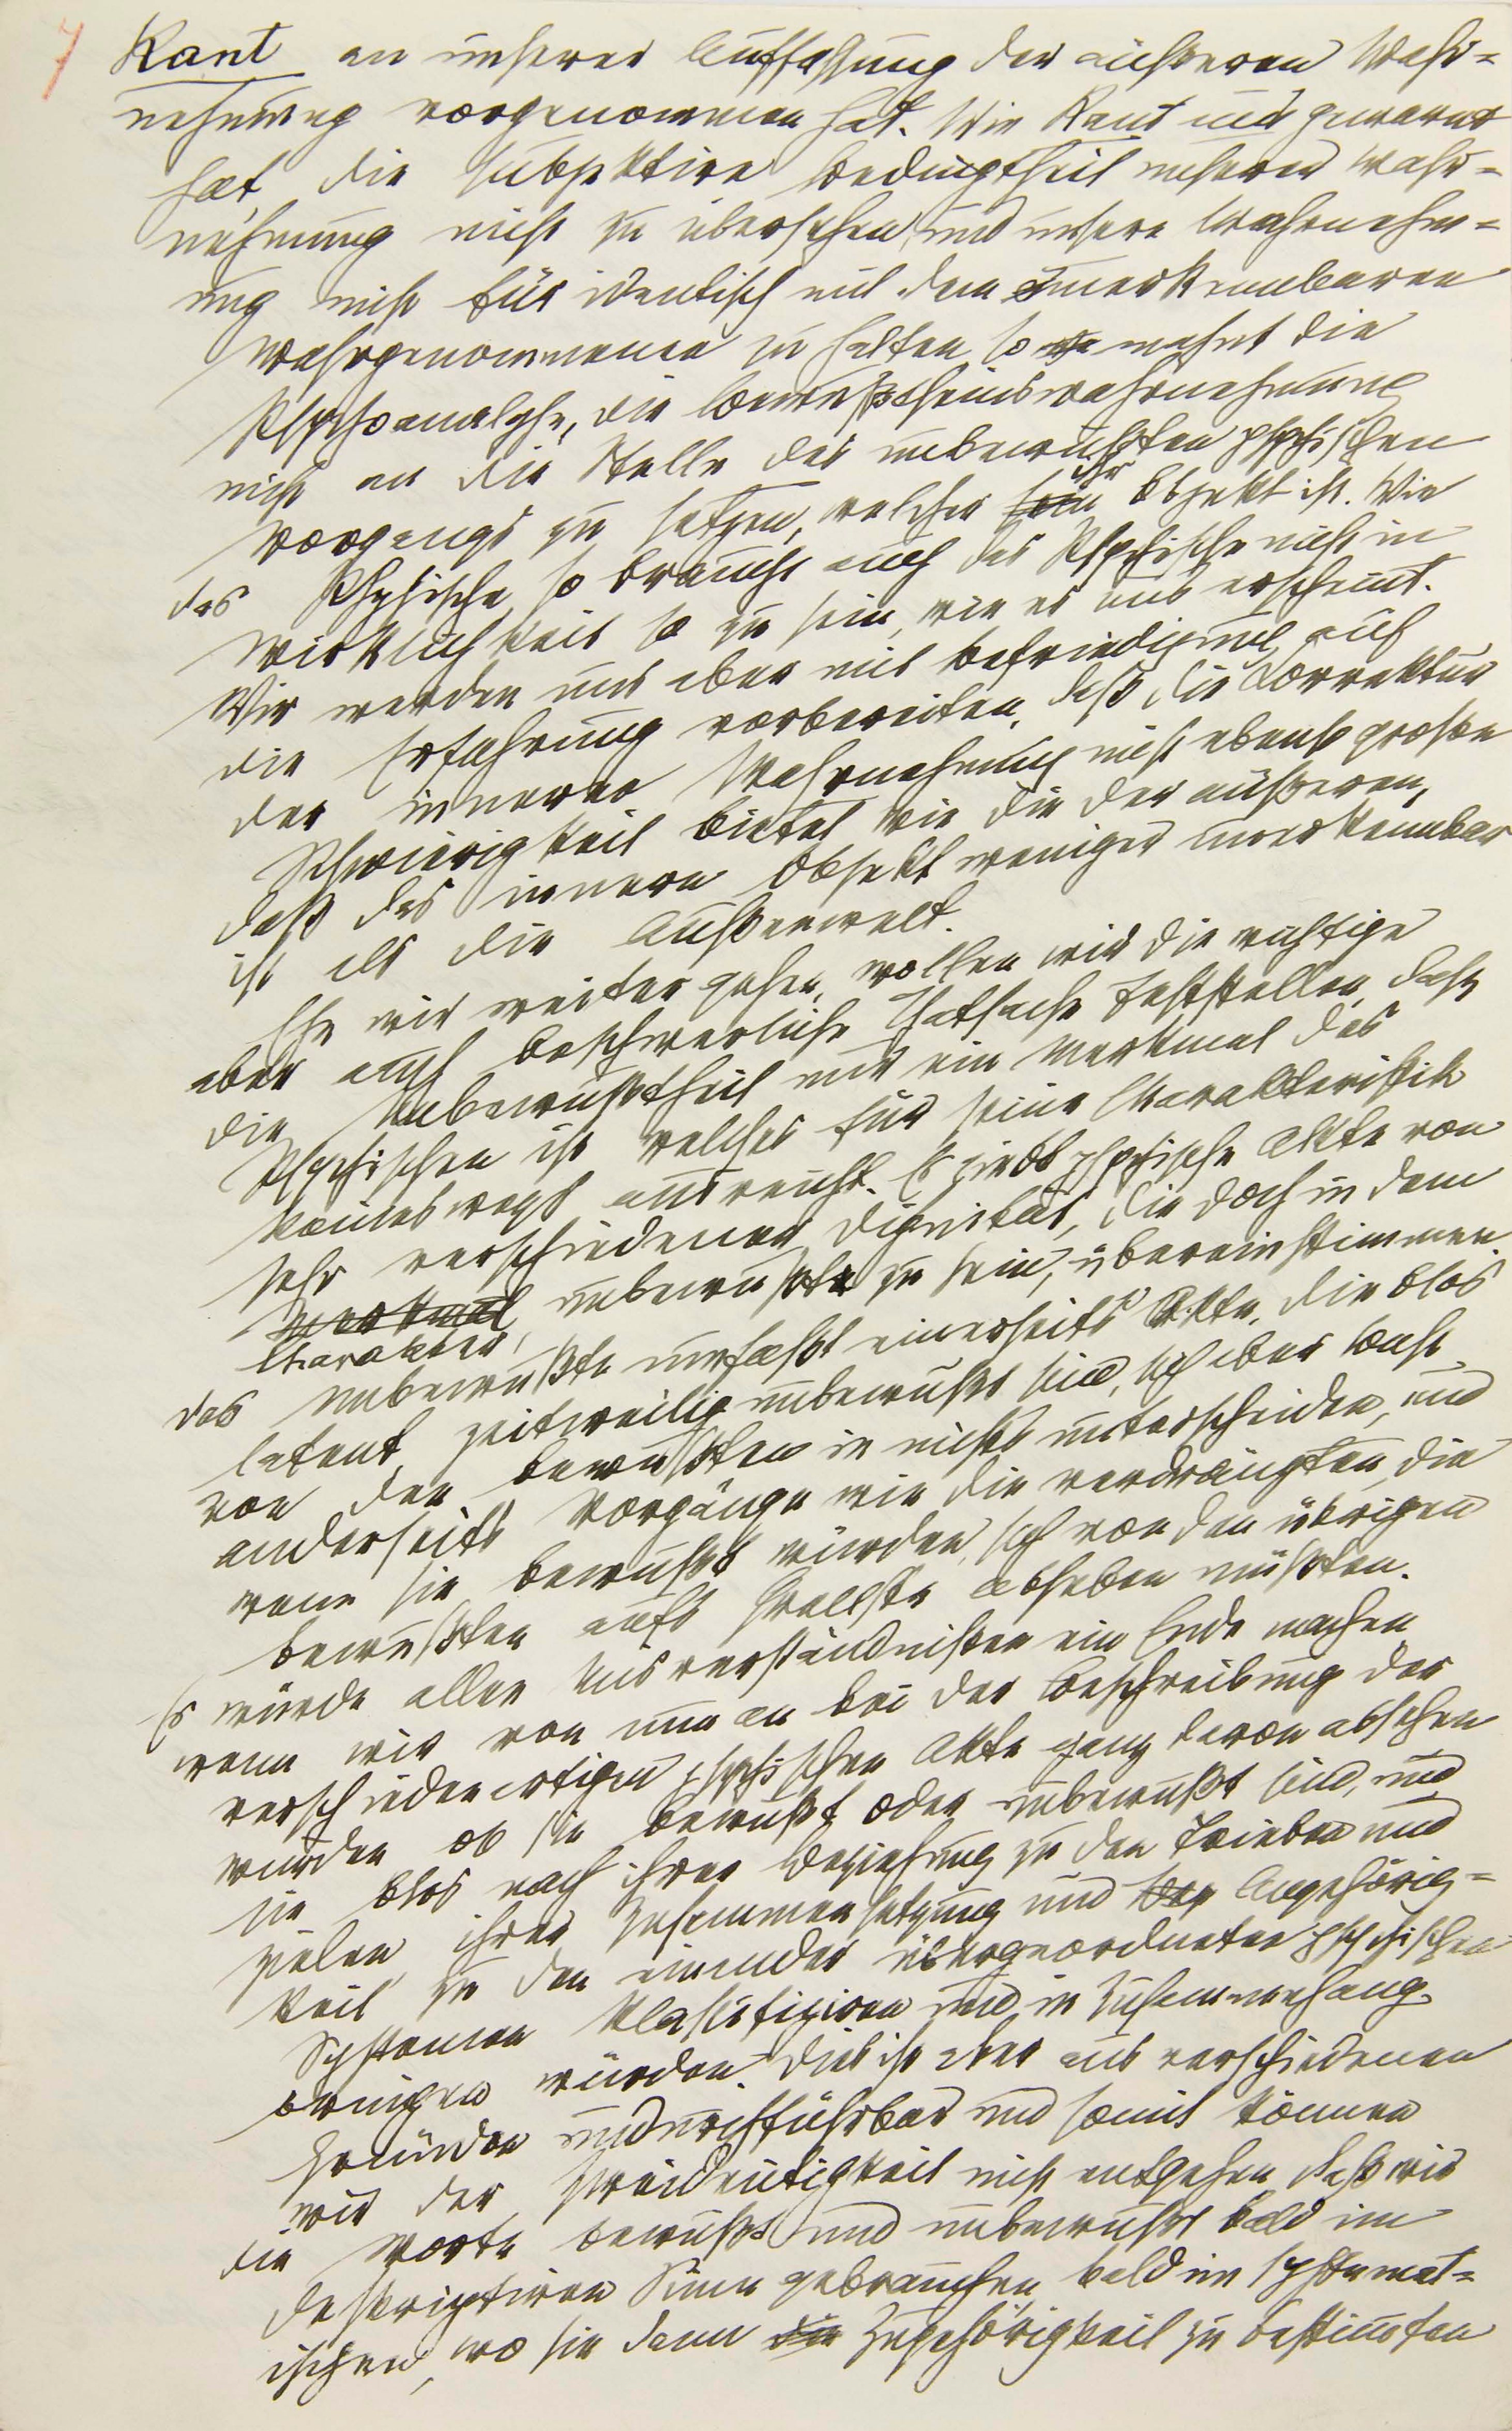 7
Kant an unserer Auffassung der äußeren Wahr=
nehmung vorgenommen hat. Wie Kant uns gewarnt
hat, die subjektive Bedingtheit unserer Wahr=
nehmung nicht zu übersehen und unsere Wahrnehm=
ung nicht für identisch mit dem unerkennbaren
Wahrgenommenen zu halten, so mahnt die
Psychoanalyse, die Bewußtseinswahrnehmung
nicht an die Stelle des unbewußten psychischen
Vorgangs zu setzen, welcher ihr Objekt ist. Wie
das Physische, so braucht auch das Psychische nicht in
Wirklichkeit so zu sein, wie es uns erscheint.
Wir werden uns aber mit Befriedigung auf
die Erfahrung vorbereiten, daß die Korrektur
der inneren Wahrnehmung nicht ebenso große
Schwierigkeit bietet wie die der äußeren,
daß das innere Objekt weniger unerkennbar
ist als die Außenwelt.
Ehe wir weiter gehen, wollen wir die wichtige
aber auch beschwerliche Thatsache feststellen, daß
die Unbewußtheit nur ein Merkmal des
Psychischen ist, welches für seine Charakteristik
keineswegs ausreicht. Es giebt psychische Akte von
sehr verschiedener Dignität, die doch in dem
Merkmal unbewußt zu sein, übereinstimmen.
Charakter,
Das Unbewußte umfaßt einerseits Akte, die blos
latent, zeitweilig unbewußt sind, sich aber sonst
von den bewußten in nichts unterscheiden, und
anderseits Vorgänge wie die verdrängten, die
wenn sie bewußt würden, sich von den übrigen
bewußten aufs Grellste abheben müßten.
Es würde allen Misverständnißen ein Ende machen,
wenn wir von nun an bei der Beschreibung der
verschiedenartigen psychischen Akte ganz davon absehen
würden ob sie bewußt oder unbewußt sind, und
sie blos nach ihrer Beziehung zu den Trieben und
Zielen, ihrer Zusammensetzung und Angehörig=
keit zu den einander übergeordneten psychischen
Systemen klassifiziren und in Zusammenhang
bringen würden. Dies ist aber aus verschiedenen
Gründen undurchführbar und somit können
wir der Zweideutigkeit nicht entgehen, daß wir
die Worte bewußt und unbewußt bald im
deskriptiven Sinne gebrauchen, bald im systemat=
ischen, wo sie dann die Zugehörigkeit zu bestimmten